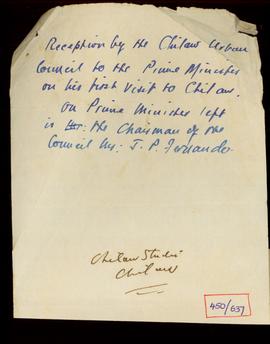 Reception by the Chilaw Urban
Council to the Prime Minister
on his first visit to Chilaw.
On Prime Minister left
is the Chairman of the
Council Mr: J. P. Fernando.
Chilaw Studio
Chilaw
450/637